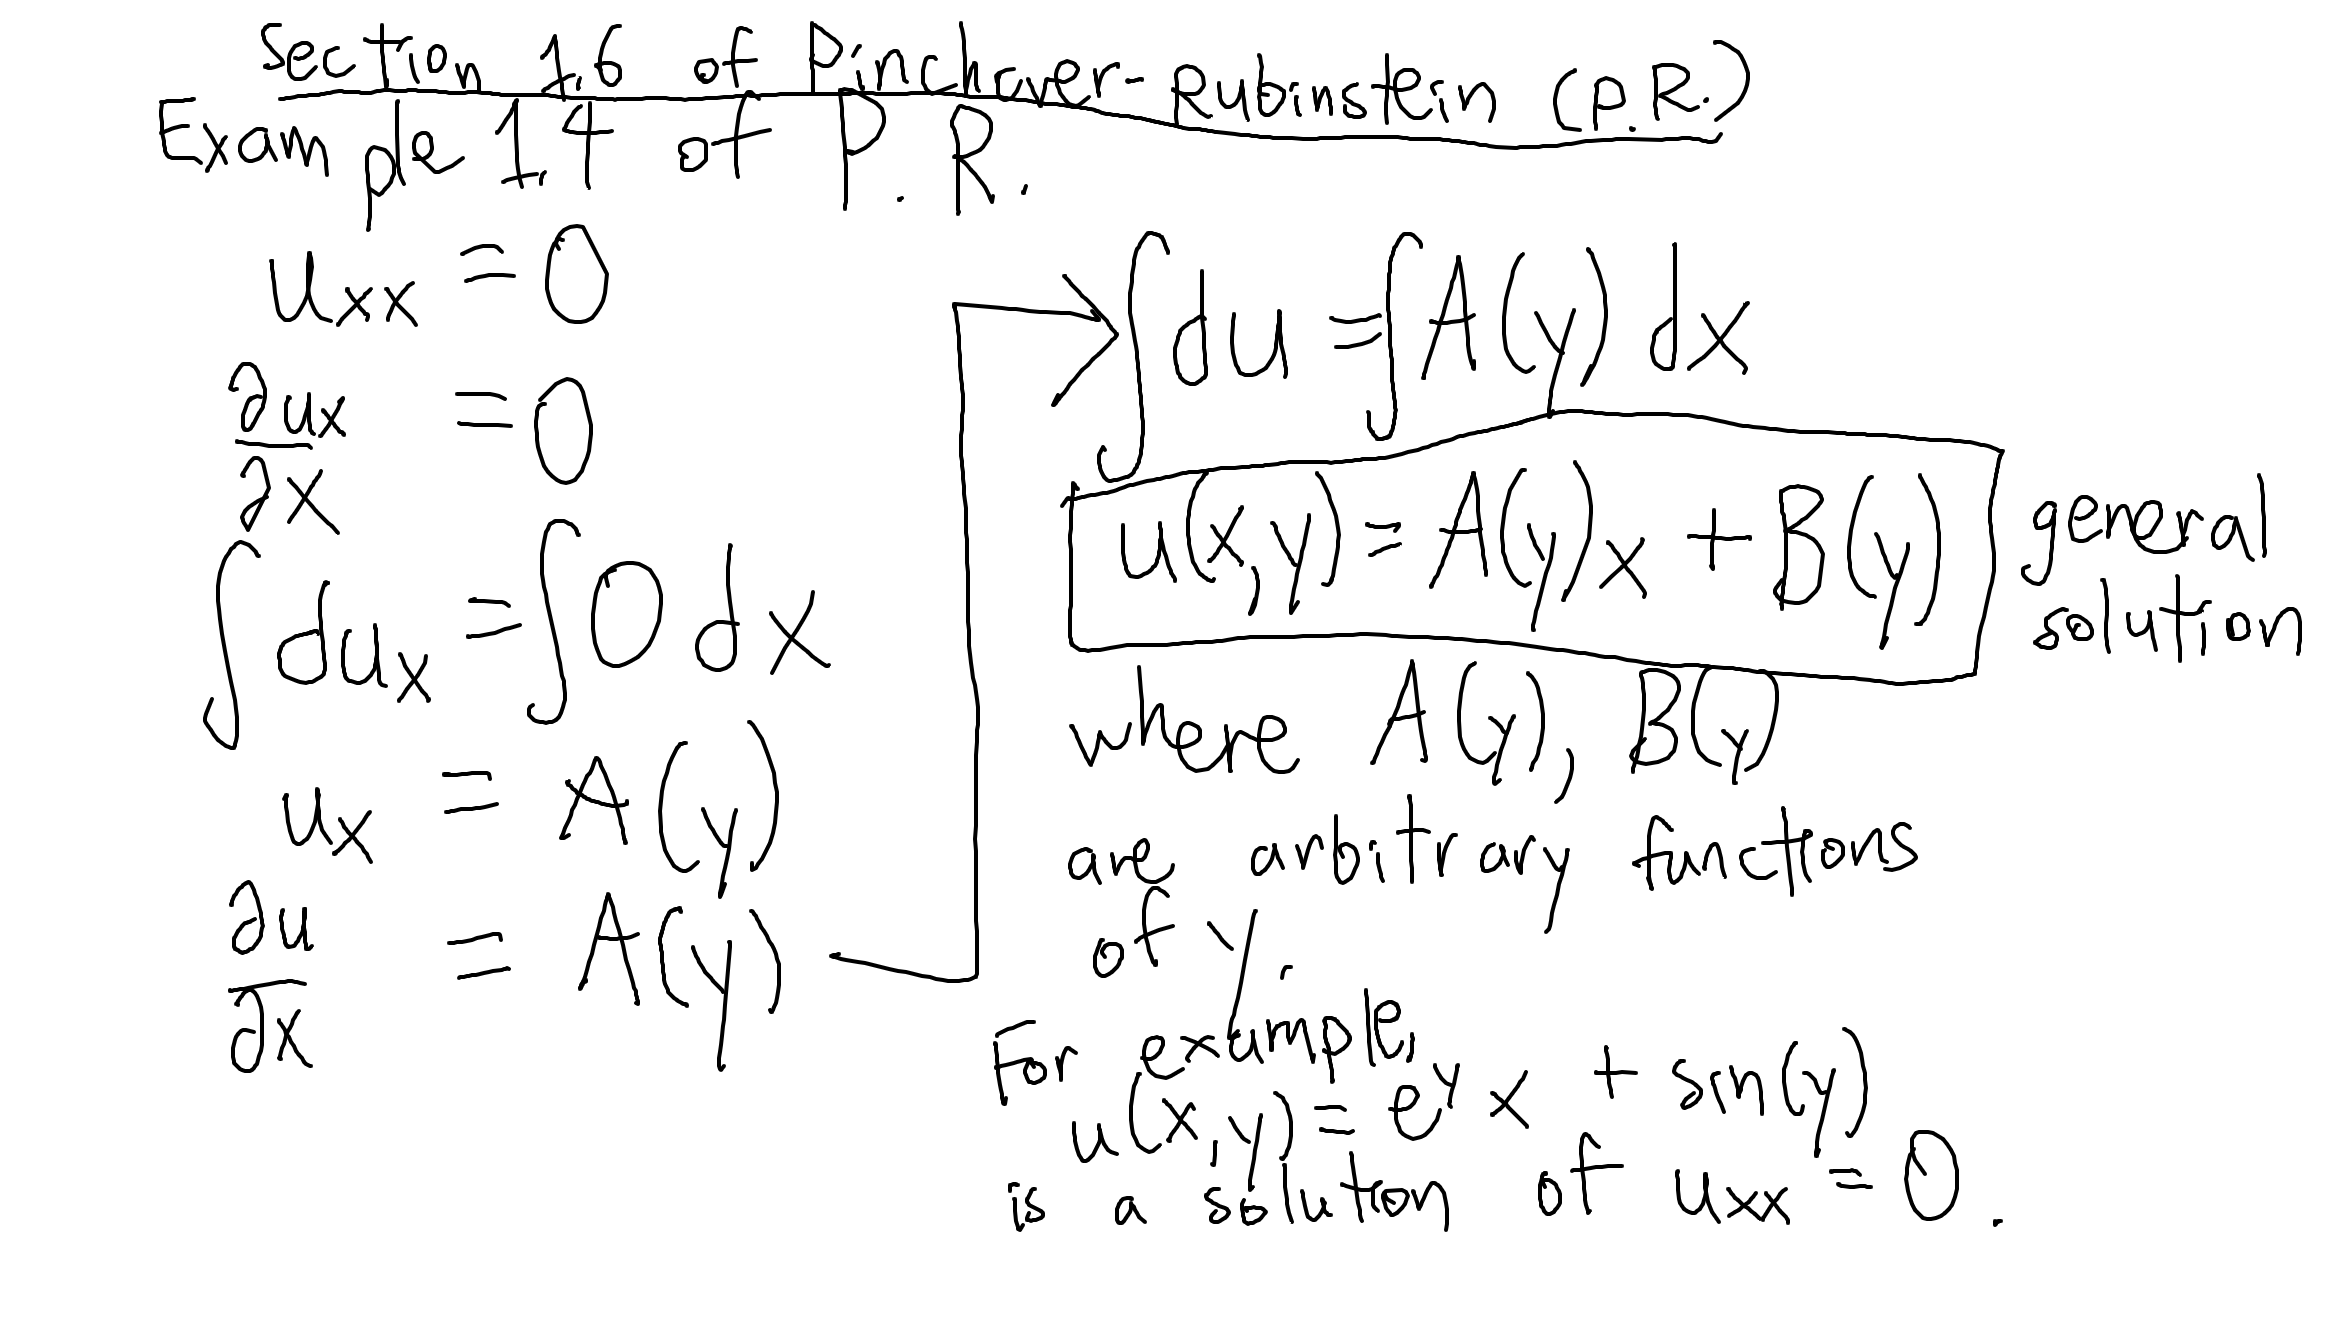 Section 1.6 of Pinchover-Rubinstein (P.R.)
Example 1.4 of P.R.
u_xx = 0
∂u_x/∂x = 0
∫ du_x = ∫ 0 dx
u_x = A(y)
∂u/∂x = A(y)
∫ du = ∫ A(y) dx
u(x,y) = A(y)x + B(y)
general
solution
where A(y), B(y)
are arbitrary functions
of y.
For example,
u(x,y) = e^y x + sin(y)
is a solution of u_xx = 0.